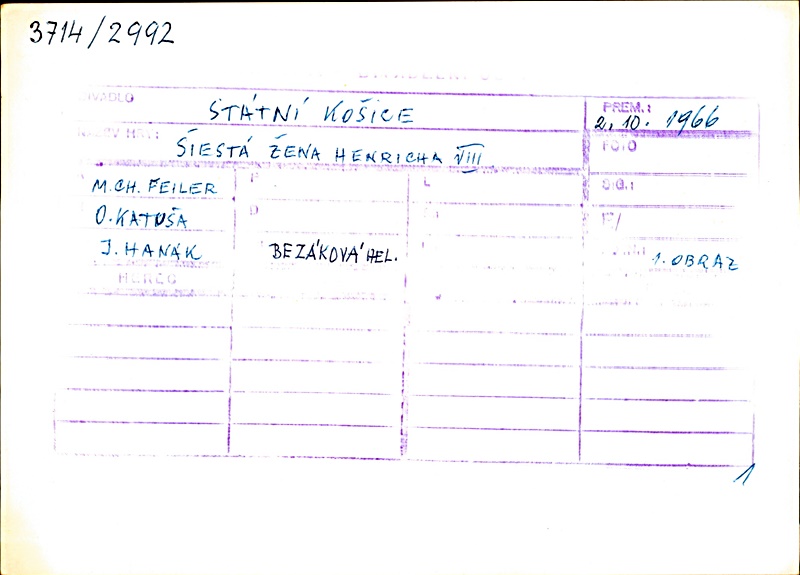 3714/2992
DIVADLO ŠTÁTNÍ KOŠICE PREM.: 2. 10. 1966
ŠIESTÁ ŽENA HENRICHA VIII FOTO
M. CH. FEILER SIG.:
O. KATUŠA
J. HANÁK BEZÁKOVÁ HEL. 1. OBRAZ
HEREC
1